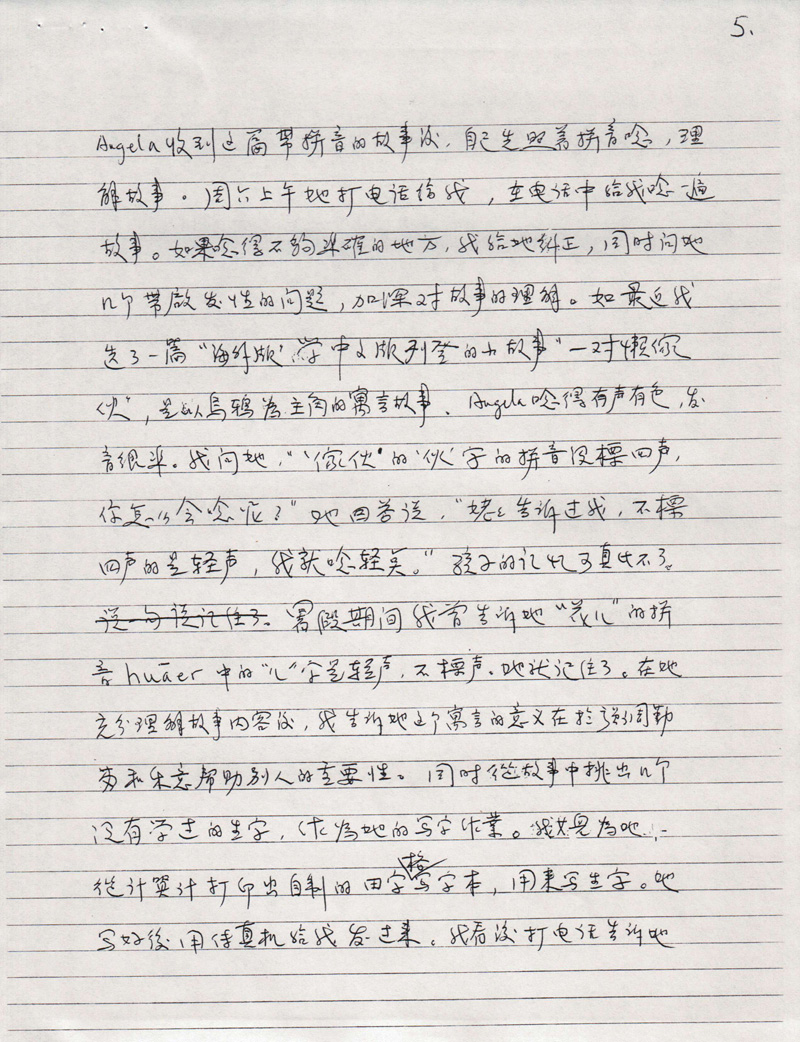 5.
Angela收到这篇带拼音的故事後，自己先照着拼音唸，理
解故事。周六上午她打电话给我，在电话中给我唸一遍
故事。如果唸得不夠准確的地方，我给她纠正，同时问她
几个带啟发性的问题，加深对故事的理解。如最近我
选了一篇“海外版‘学中文版刊登的小故事“一对懒傢
伙”，是以乌鸦为主角的寓言故事、Angela唸得有声有色，发
音很准。我问她，“‘傢伙’的‘伙’字的拼音没標四声，
你怎么会唸呢？”她回答说，“姥姥告诉过我，不標
四声的是轻声，我就唸轻矣。”孩子的记忆可真忘不了。
说一句话记住了。暑假期间我曾告诉她“花儿”的拼
音huāer中的“儿”字是轻声，不標声。她就记住了。在她
充分理解故事内容後，我告诉她这个寓言的意义在於强调勤
劳和乐意帮助别人的重要性。同时從故事中挑出几个
没有学过的生字，作为她的写字作業。我为她
從计算计打印出自制的田字格写字本，用来写生字。她
写好後用传真机给我发过来。我看後打电话告诉她